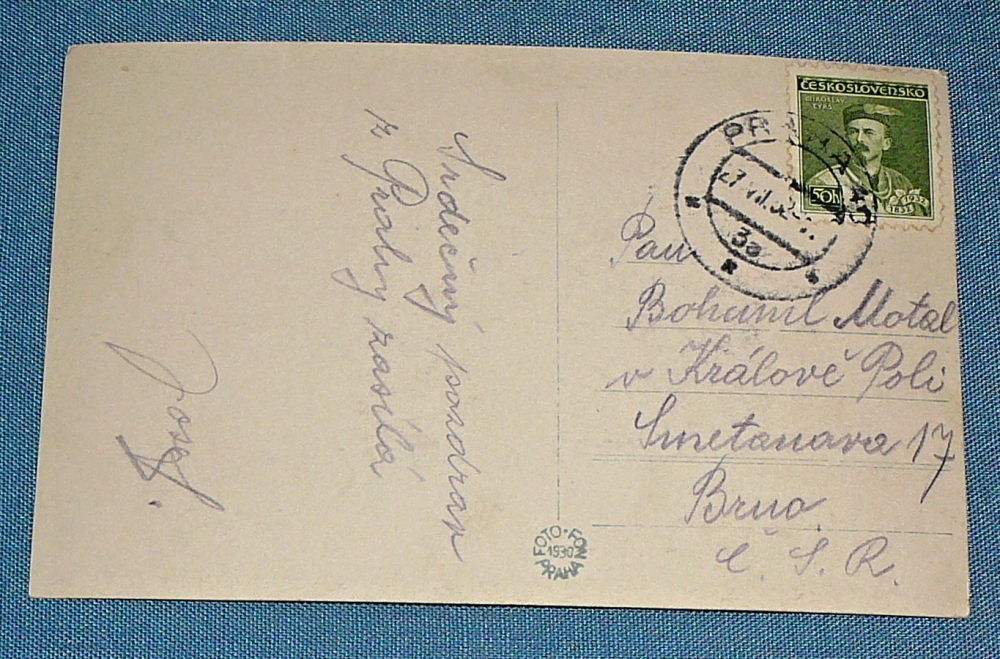 Srdečný pozdrav
z Prahy zasílá
Josef.
ČESKOSLOVENSKO
MIROSLAV
TYRŠ
50h
1932
1832
PRAHA 10
27.VII.32
3a
Pan
Bohumil Motal
v Králové Poli
Smetanava 17
Brno.
Č. S. R.
FOTO-FON
1930
PRAHA